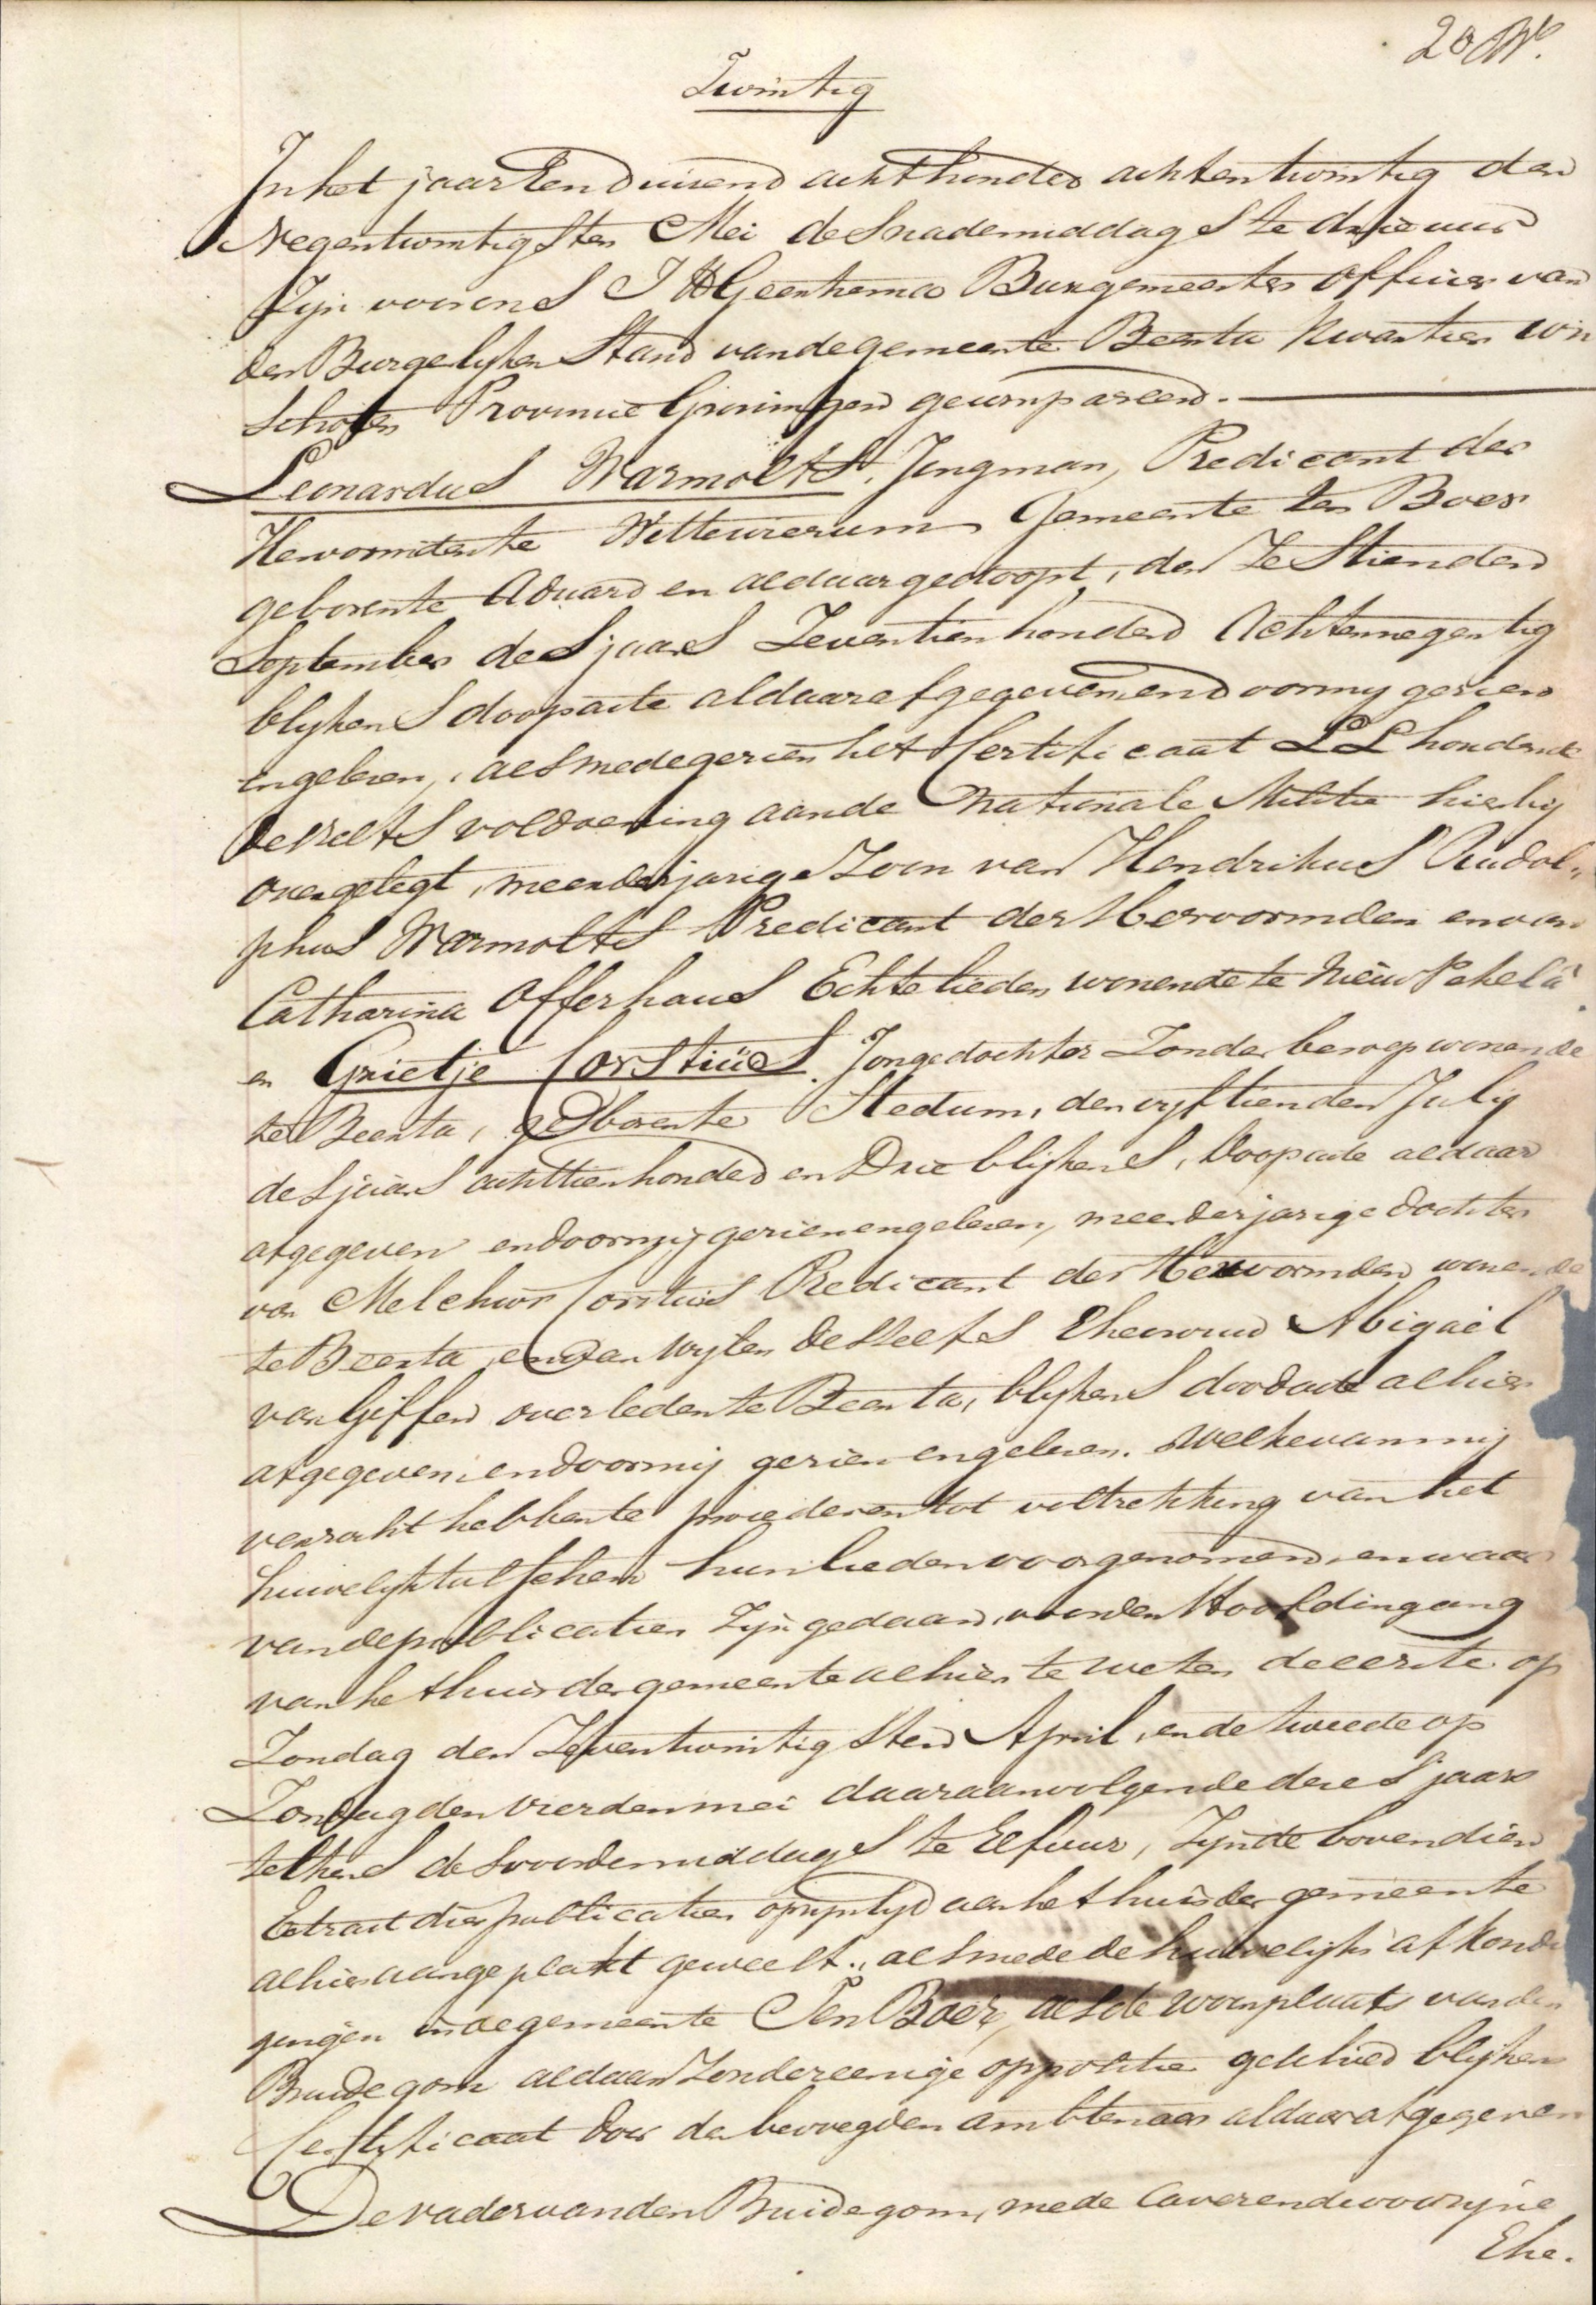 20
Twintig
In het jaar Eenduisend achthonderd achtentwintig den
Negentwintigsten Mei des nademiddags te drie uur
Zijn voor ons Geertsema Burgemeester Officier van
den Burgelyken Stand van de gemeente Beerta Kwartier Win
schoten Provincie Groningen gecompareerd.
Leonardus Warmolts. Jongman, Predicant der
Hervormden te Wittewierum Gemeente ten Boer
geboren te Aduard en aldaar gedoopt, den Zestienden
September des jaars Zeventienhonderd Achtennegentig
blykens doopacte aldaar afgegeven en door my gezien
en gelezen, alsmede gezien het Certificaat LL houdende
deszelfs voldoening aan de Nationale Militie hierby
overgelegt, meerderjarige Zoon van Hendrikus Rudol„
phus Warmolts Predicant der Hervormden en van
Catharina Offerhaus Echtelieden wonende te Nieuw Pekela
en Grietje Corstiüs. Jongedochter Zonder beroep wonende
te Beerta, geboren te Stedum, den vyftienden July
des jaars achttienhonderd en Drie blijkens, Doopacte aldaar
afgegeven en door mij gezien en gelezen, meerderjarige dochter
van Melchior Corstius Predicant der Hervormden wonende
te Beerta, en van wylen deszelfs Ehevrouw Abigaël
van Giffen overleden te Beerta, blykens doodacte alhier
afgegeven, en door mij gezien en gelezen. Welke van mij
verzocht hebben te procederen tot voltrekking van het
huwelyk tulschen hunlieden voorgenomen, en waar
van de publicatien Zijn gedaan, voor den Hoofdingang
van het huis der gemeente alhier te weten de eerste op
Zondag den Zeventwintigsten April, en de tweede op
Zondag den vierden mei daaraanvolgende dezes jaars
telkens des voordemiddags te Elf uur, Zijnde bovendien
Extract dier publicatien op zyn tyd aan het huis der gemeente
alhier aangeplakt geweest., alsmede de huwelijks afkondi
gingen in de gemeente Ten Boer, als de woonplaats van den
Bruidegom aldaar Zonder eenige oppositie geschied blykens
Certificaat door de bevoegden ambtenaar aldaar afgegeven
De vader van den Bruidegom, mede Caverende voor zijne
Ehe.